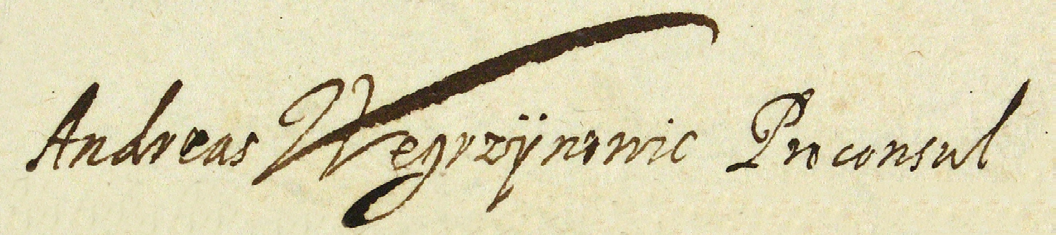 Andreas Węgrzÿnowic Proconsul